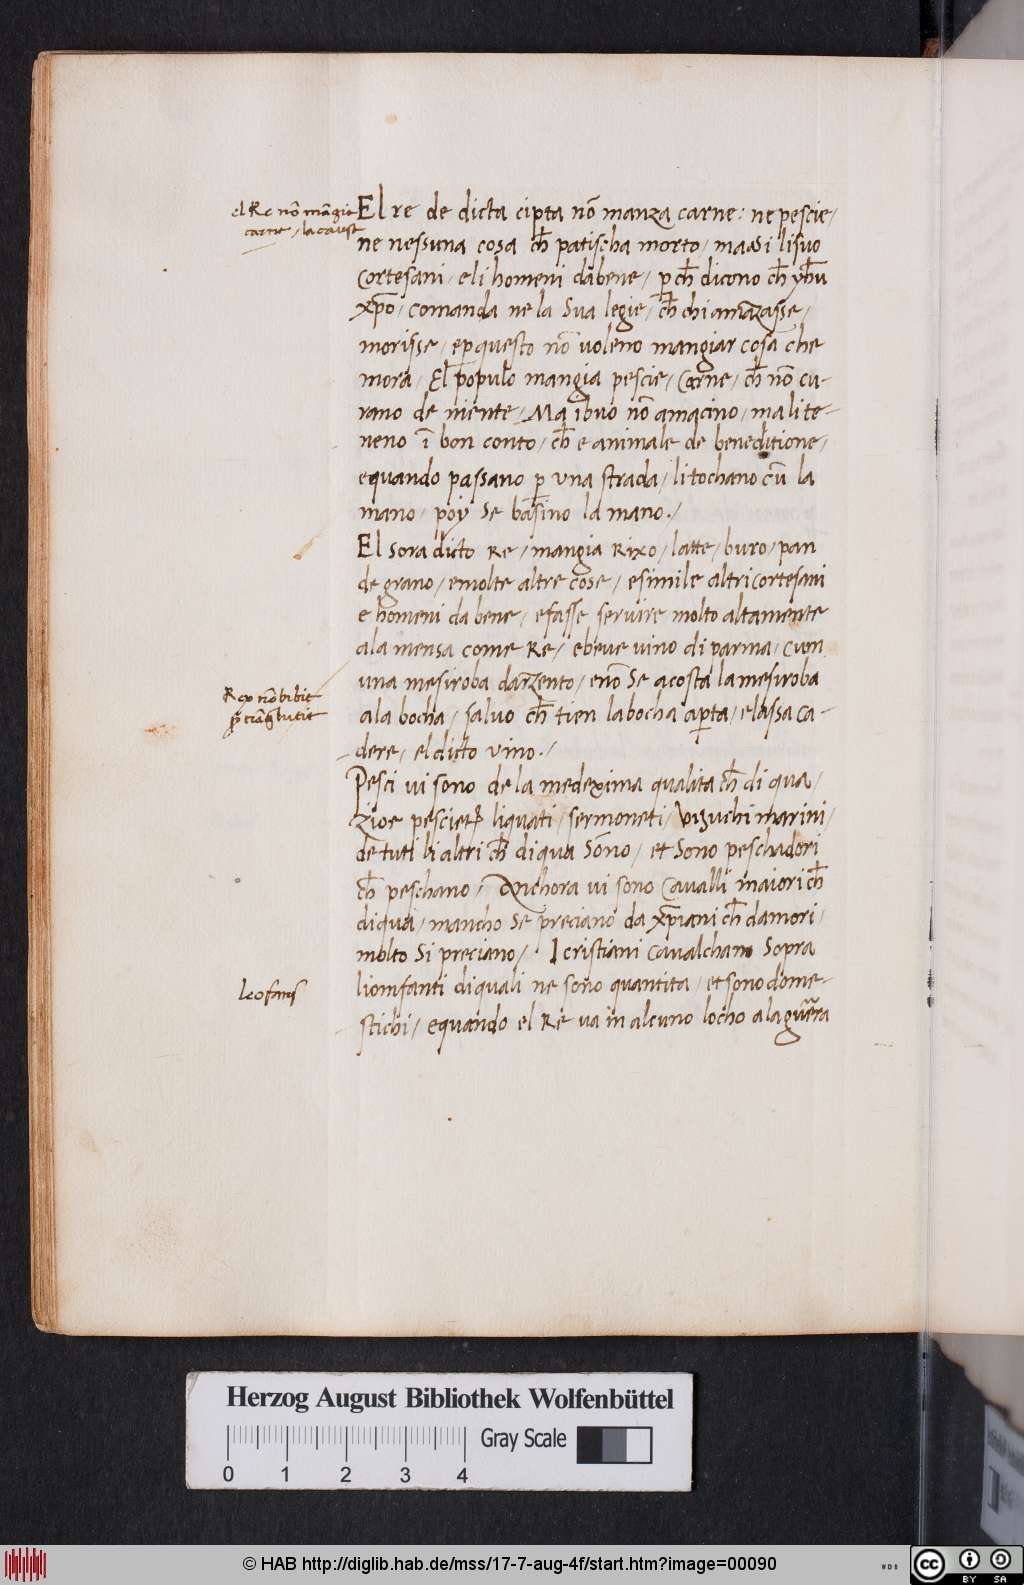 el Re nō māgia
carne / la causa
El re de dicta cipta nō manza carne : ne pescie /
ne nessuna cosa ch̄ patischa morto / ma di li suo
Cortesani / e li homeni da bene / p̱ ch̄ dicono ch̄ yh̄u
xp̄o / comanda ne la Sua legie / ch̄ chi amazasse /
morisse / e p̱ questo nō voleno mangiar cosa che
mora / El populo mangia pescie / Carne / ch̄ nō cu-
rano de niente / Ma i buo nō amacino / ma li te-
neno ī bon conto / ch̄ e animale de beneditione /
e quando passano p̱ una strada / li tochano cū la
mano / poy se basino la mano . /
El sora dicto Re / mangia Rixo / latte / buro / pan
de grano / e molte altre cose / e simile altri cortesani
e homeni da bene / e fasse servire molto altamente
a la mensa come Re / e beve vino di parma / cum
una mesiroba darzento / e nō Se acosta la mesiroba
Rex nō bibit
a la bocha / salvo ch̄ tien la bocha ap̱ta / e lassa ca-
dere / el dicto vino . /
Pesci vi sono de la medexima qualita ch̄ di qua /
zioe pescie liquati / sermoneti / marini /
de tuti li altri ch̄ di qua Sono / et Sono peschadori
ch̄ peschano / Anchora vi sono Cavalli maiori ch̄
di qua / mancho Se preciano da xp̄iani ch̄ da mori /
molto Si preciano / . I cristiani cavalchano Sopra
Leofans
liomfanti di quali ne sono quantita / et sono dome-
stichi / e quando el Re va in alcuno locho a la guerra
Herzog August Bibliothek Wolfenbüttel
Gray Scale
0 1 2 3 4
© HAB http://diglib.hab.de/mss/17-7-aug-4f/start.htm?image=00090
WDB
cc BY SA